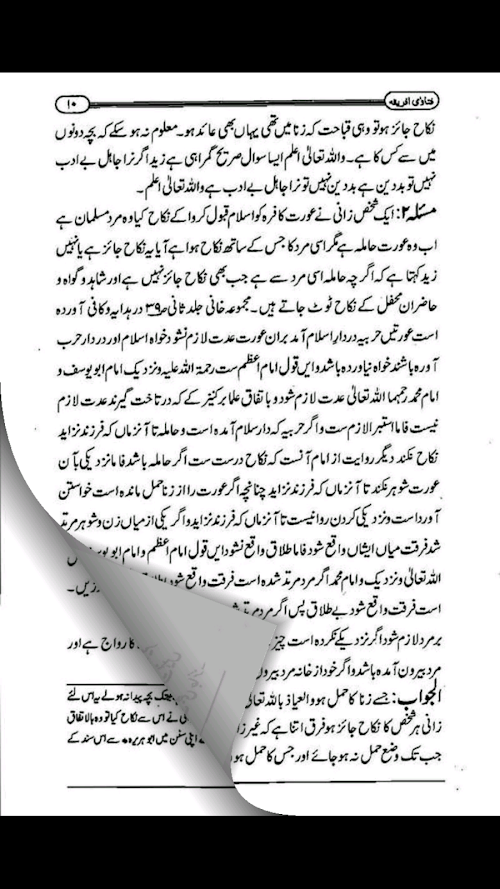 فتاوٰی افریقہ
۱۰
نکاح جائز ہو تو وہی قباحت کہ زنا میں تھی یہاں بھی عائد ہو۔ معلوم نہ ہو سکے کہ بچہ دونوں
میں سے کس کا ہے۔ واللہ تعالیٰ اعلم ایسا سوال صریح گمراہی ہے زید اگر نرا جاہل بے ادب
نہیں تو بددین ہے بددین نہیں تو نرا جاہل بے ادب ہے واللہ تعالیٰ اعلم۔
مسئلہ ۲: ایک شخص زانی نے عورت کافرہ کو اسلام قبول کروا کے نکاح کیا وہ مرد مسلمان ہے
اب وہ عورت حاملہ ہے مگر اسی مرد کا جس کے ساتھ نکاح ہوا ہے آیا یہ نکاح جائز ہے یا نہیں
زید کہتا ہے کہ اگرچہ حاملہ اسی مرد سے ہے جب بھی نکاح جائز نہیں ہے اور شاہد و گواہ و
حاضران محفل کے نکاح ٹوٹ جاتے ہیں۔ مجموعہ خانی جلد ثانی ص۳۹ در ہدایہ و کافی آوردہ
است عورتیں حربیہ در دار اسلام آمد بران عورت عدت لازم نشود خواہ اسلام اور دار حرب
آورہ باشند خواہ نیاوردہ باشد و ایں قول امام اعظم ست رحمۃ اللہ علیہ و نزدیک امام ابو یوسف و
امام محمد رحمہما اللہ تعالیٰ عدت لازم شود و باتفاق علما بر کنیز کے کہ در تاخت گیرند عدت لازم
نیست فاما استبرا لازم ست و اگر حربیہ کہ دار سلام آمدہ است و حاملہ تا آنزماں کہ فرزند نزاید
نکاح نکند دیگر روایت از امام آنست کہ نکاح درست ست اگر حاملہ باشد فاما نزدیکی بآن
عورت شوہر نکند تا آنزماں کہ فرزند نزاید چنانچہ اگر عورت را از زنا حمل ماندہ است خواستن
آوردا ست و نزدیکی کردن روا نیست تا آنزماں کہ فرزند نزاید و اگر یکی از میاں زن و شوہر مرتد
شد فرقت میاں ایشاں واقع شود فاما طلاق واقع نشود ایں قول امام اعظم و امام ابو یوسف
اللہ تعالیٰ و نزدیک و امام محمد اگر مرد مرتد شدہ است فرقت واقع شود
است فرقت واقع شود بے طلاق پس اگر مرد مرتد
بر مرد لازم شود اگر نزدیکے نکردہ است چیز کا رواج ہے اور
مرد بیرون آمدہ باشد و اگر خود از خانہ مرد بیرون
الجواب: جسے زنا کا حمل ہو والعیاذ باللہ تعالیٰ بچہ پیدا نہ ہولے یہ اس لئے
زانی ہر شخص کا نکاح جائز ہو فرق اتنا ہے کہ غیر زا نے اس سے نکاح کیا تو وہ بالاتفاق
جب تک وضع حمل نہ ہو جائے اور جس کا حمل ہو اپنی سنن میں ابو ہریرہ سے اس سند کے